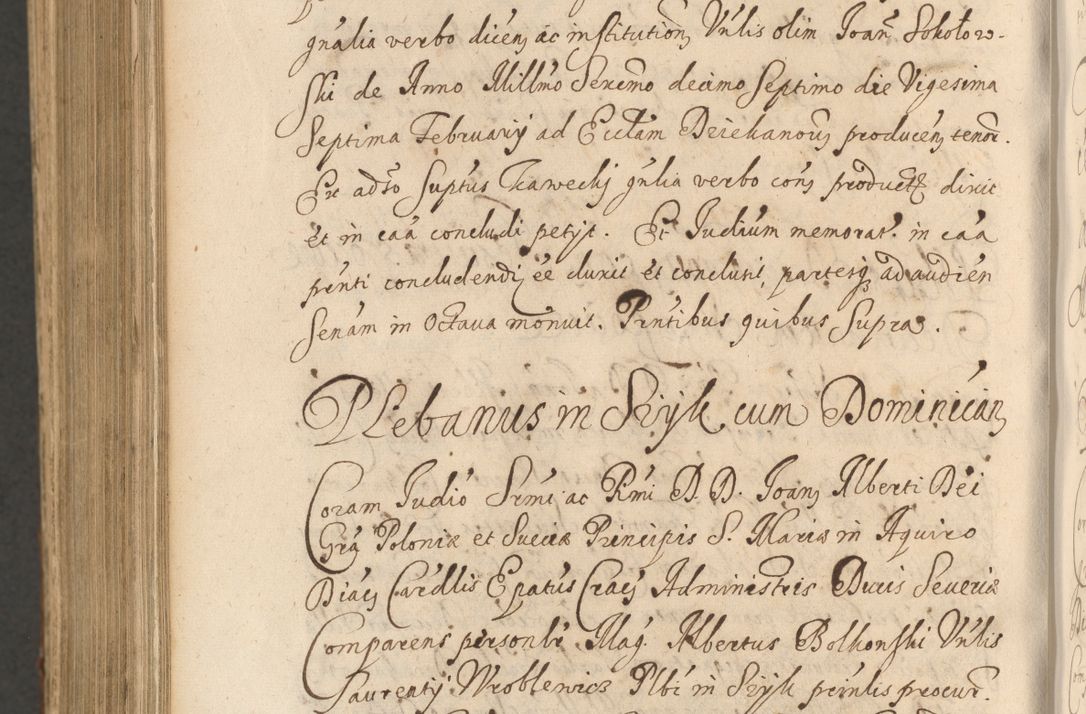 gnãlia verbo dicen̄ ac institution̄ Vnlis olim Joan̄ Sokołow-
ski de Anno Millmo Sexcmo decimo Septimo die Vigesima
Septima Februarij ad Ecclam Dziekanoviȩ producen̄ tenor.
Ex adso Suptus Tkawecky gnlia verbo con̄ product dixit
et in caã concludi petijt. Et Judium memorat. in caã
pnti concludendi eē duxit et conclusit, partesq ad audien
Senam in Octava monuit. Pntibus quibus Supra.
PLebanus in Szyk cum Dominican̄
Coram Judio Srmi ac Rmi D. D. Joan̄ Alberti Dei
Gra Poloniæ et Sueciæ Principis S. Mariæ in Aquiro
Diac̄ Cardllis Epatus Crac̄ Administris Ducis Severiæ
Comparens personlr Mag. Albertus Bolkonski Vnlis
Laurentij Wroblewicz Plbi in Szyk pernlis procur.